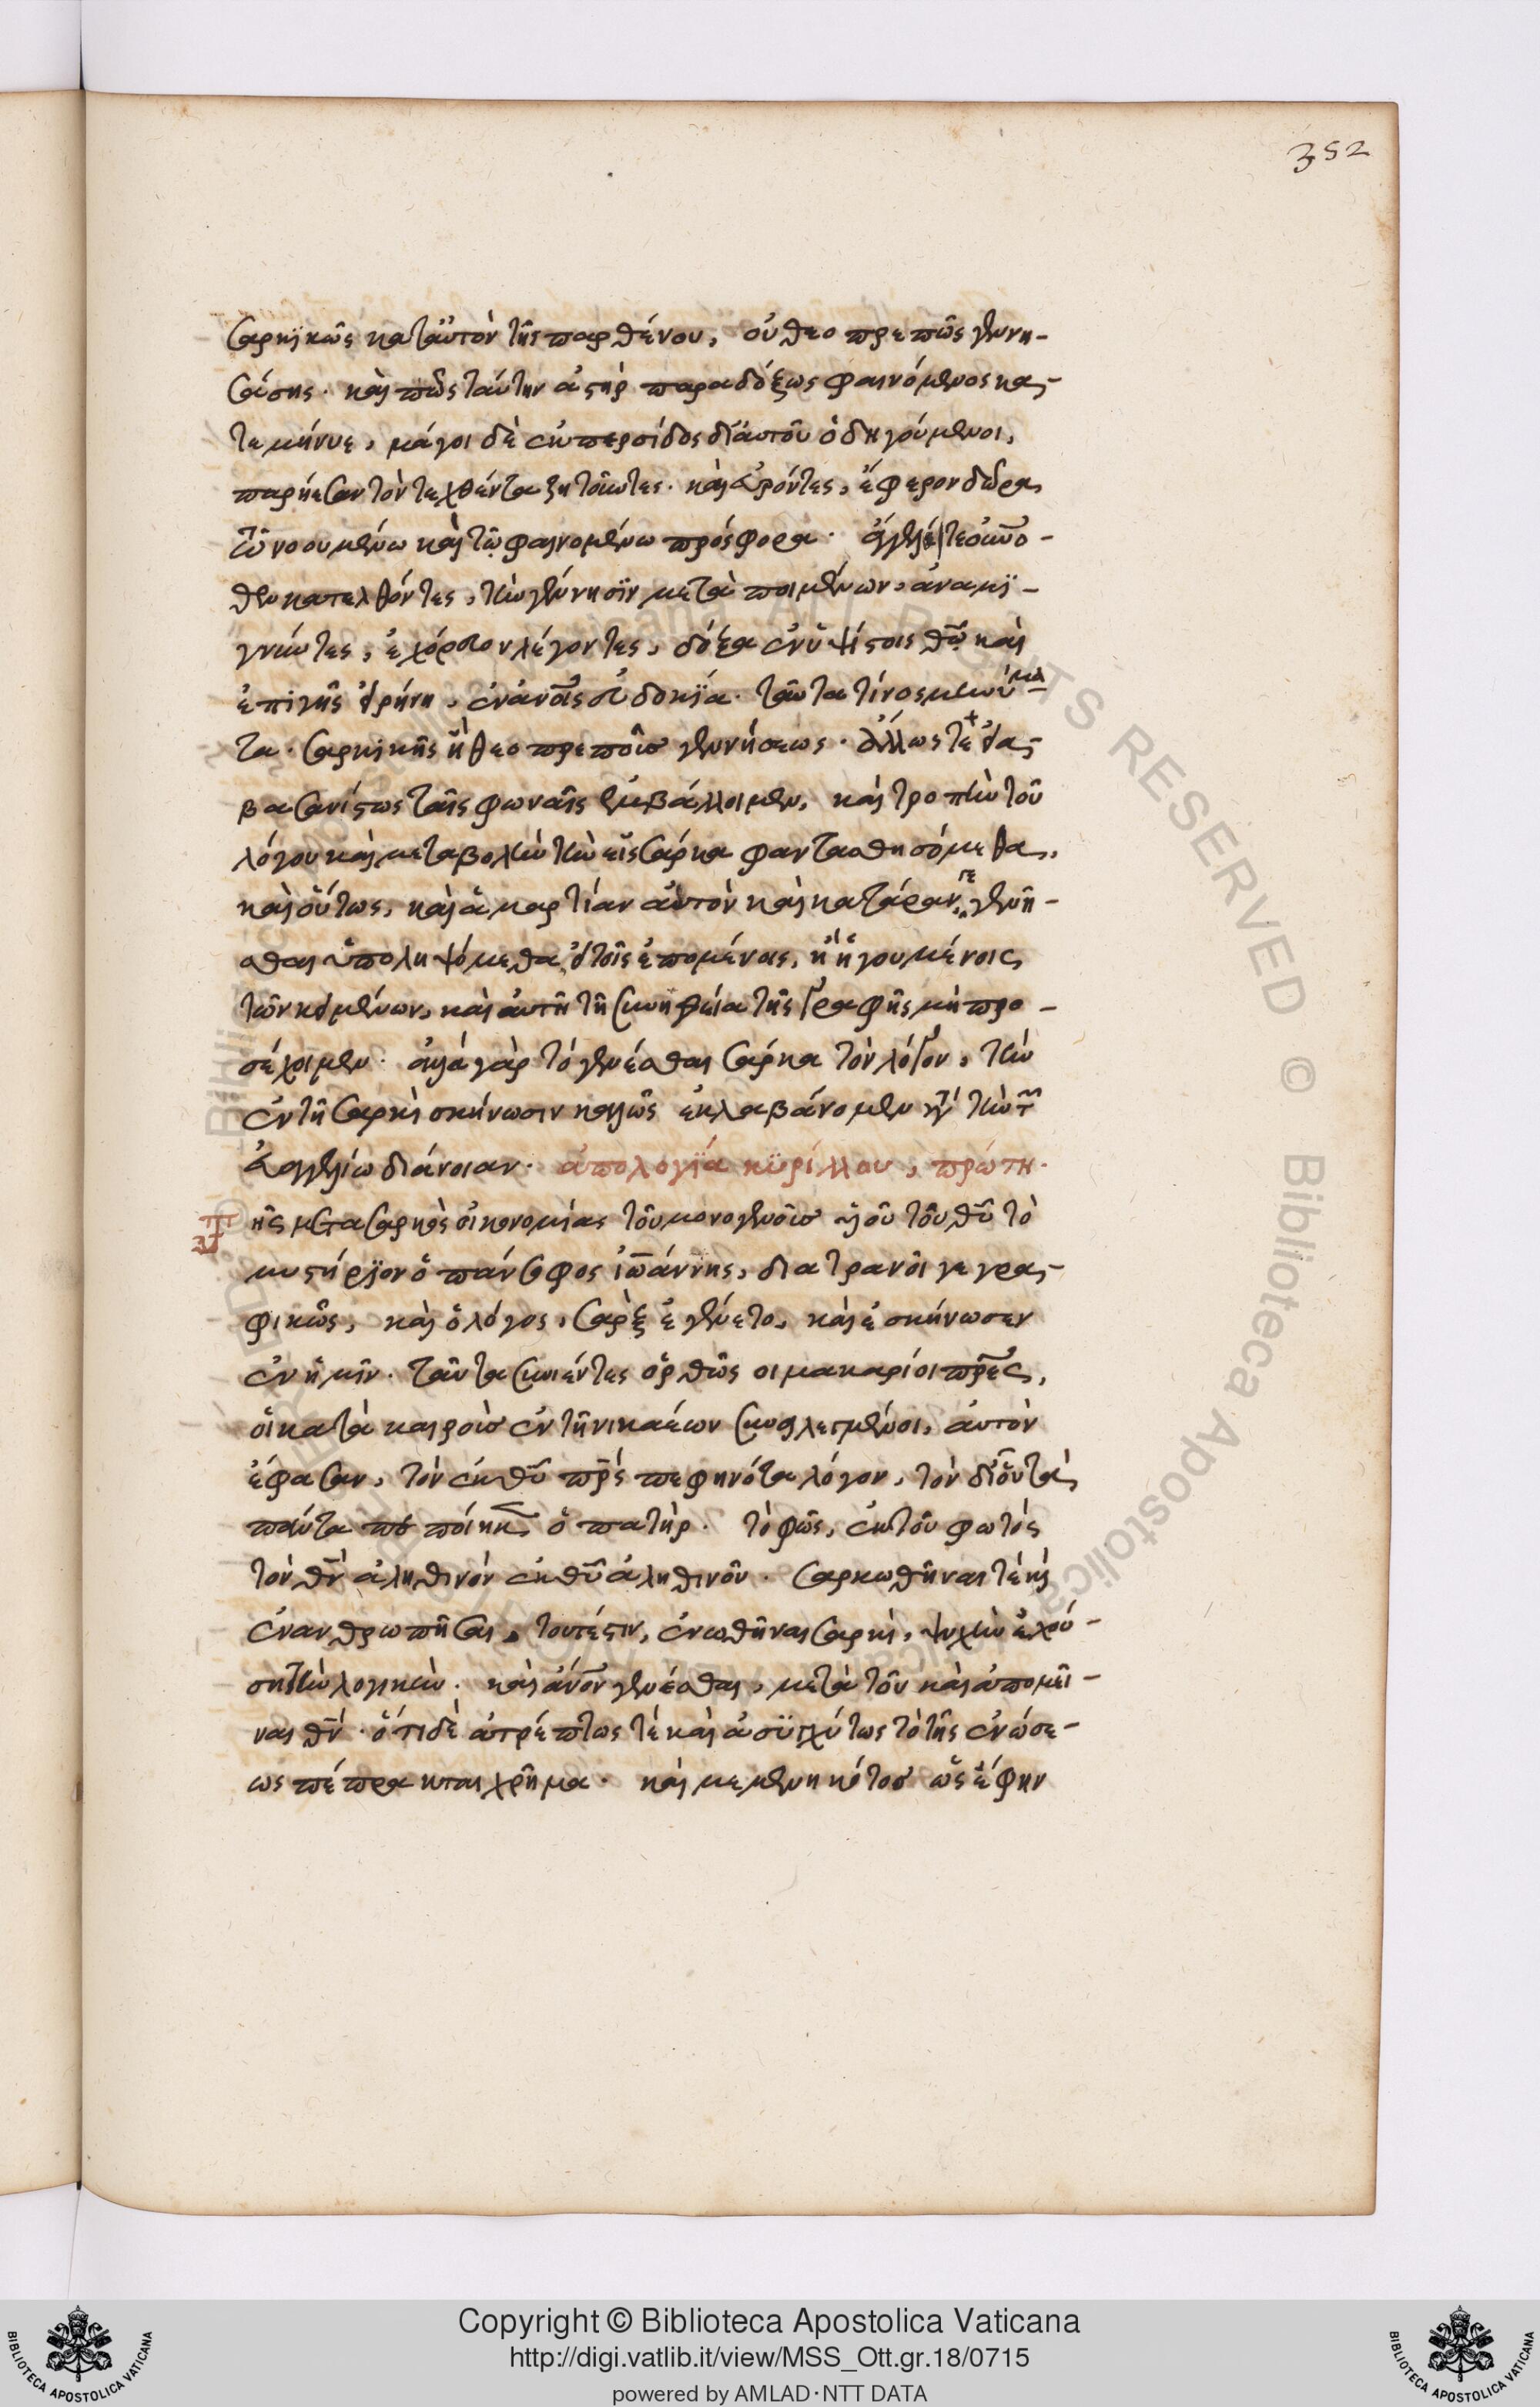 352
σαρκϊκῶς κατ' αὐτὸν τῆς παρθένου, οὐ θεοπρεπῶς γεννη-
σάσης. καὶ πῶς ταύτην ἀστὴρ παραδόξως φαινόμενος κα-
τεμήνυε, μάγοι δὲ ἐκ περσίδος δι' αὐτοῦ ὁδηγούμενοι,
παρῆεσαν τὸν τεχθέντα ζητοῦντες. καὶ εὑρόντες, ἔφερον δῶρα,
τῶ νοουμένω καὶ τῶ φαινομένω πρόσφορα. ἄγγελοί τε οὐνο-
θεν κατελθόντες, τὴν γέννησϊν μετὰ ποιμένων, ἀναμϊ-
γνύντες, ἐχόρευον λέγοντες, δόξα ἐν ὑψίστοις θῶ καὶ
ἐπὶ γῆς εἰρήνη, ἐν ἀνοις εὐδοκϊα. ταῦτα τίνος μηνύμα-
τα. σαρκικῆς ἢ θεοπρεποῦς γεννήσεως. ἄλλως τε εἰ ἀ-
βασανίστως ταῖς φωναῖς ἐμβάλλοιμεν, καὶ τροπὴν τοῦ
λόγου καὶ μεταβολὴν τὴν εἰς σάρκα φαντασθησόμεθα,
καὶ οὕτως, καὶ ἁμαρτίαν αὐτὸν καὶ κατάραν γε γενέ-
σθαι ὑποληψόμεθα, εἰ τοῖς ἑπομένοις, ἢ ἡγουμένοις
τῶν κειμένων, καὶ αὐτῆ τῆ συνηθεία τῆς γραφῆς μὴ προ-
σέχοιμεν. ἀλλὰ γὰρ τὸ γενέσθαι σάρκα τὸν λόγον, τὴν
ἐν τῆ σαρκὶ σκήνωσιν καλῶς ἐκλαβάνομεν κτ τὴν τ
εὐαγγελίω διάνοιαν. ἀπολογϊα κϋρίλλου, πρώτη.
τῆς μετὰ σαρκὸς οἰκονομίας τοῦ μονογενοῦς υἱοῦ τοῦ θῦ τὸ
μυστήρϊον ὁ πάνσοφος ἰωάννης, διατρανοῖ γεγρα-
φικῶς, καὶ ὁ λόγος, σὰρξ ἐγένετο, καὶ ἐσκήνωσεν
ἐν ἡμῖν. ταῦτα συνιέντες ὀρθῶς οι μακαρίοι πρες,
οἱ κατὰ καιροὺς ἐν τῆ νικαέων συνειλεγμένοι, αὐτὸν
ἔφασαν, τὸν ἐκ θῦ πρς πεφηνότα λόγον, τὸν δι' οὗ τὰ
πάντα πεποίηκεν ὁ πατὴρ. τὸ φῶς, ἐκ τοῦ φωτός
τὸν θν ἀληθινὸν ἐκ θῦ ἀληθινοῦ. σαρκωθῆναι τέ καὶ
ἐνανθρωπῆσαι, τουτέστιν, ἑνωθῆναι σαρκὶ, ψυχὴν ἐχού-
ση τὴν λογικὴν. καὶ ἄνον γενέσθαι, μετὰ τοῦ καὶ ἀπομεῖ-
ναι θν. ὅτι δὲ ἀτρέπτως τέ καὶ ἀσϋγχύτως τὸ τῆς ἑνώσε-
ως πέπρακται χρῆμα. καὶ μεμενηκότος ὡς ἔφην
Copyright © Biblioteca Apostolica Vaticana
http://digi.vatlib.it/view/MSS_Ott.gr.18/0715
powered by AMLAD·NTT DATA